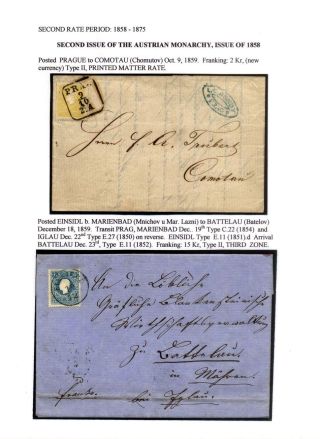 SECOND RATE PERIOD: 1858 - 1875
SECOND ISSUE OF THE AUSTRIAN MONARCHY, ISSUE OF 1858
Posted PRAGUE to COMOTAU (Chomutov) Oct. 9, 1859. Franking: 2 Kr, (new
currency) Type II, PRINTED MATTER RATE.
PRAG
Herrn
Comotau
Posted EINSIDL b. MARIENBAD (Mnichov u Mar. Lazni) to BATTELAU (Batelov)
December 18, 1859. Transit PRAG, MARIENBAD Dec. 19th Type C.22 (1854) and
IGLAU Dec. 22nd Type E.27 (1850) on reverse. EINSIDL Type E.11 (1851).d Arrival
BATTELAU Dec. 23rd, Type E.11 (1852). Franking: 15 Kr, Type II, THIRD ZONE.
An die Löbliche
Gräfliche Blankensteinische
Wirthschaftsverwaltung
Zu Battelau
in Mähren.
Franko. bei Iglau